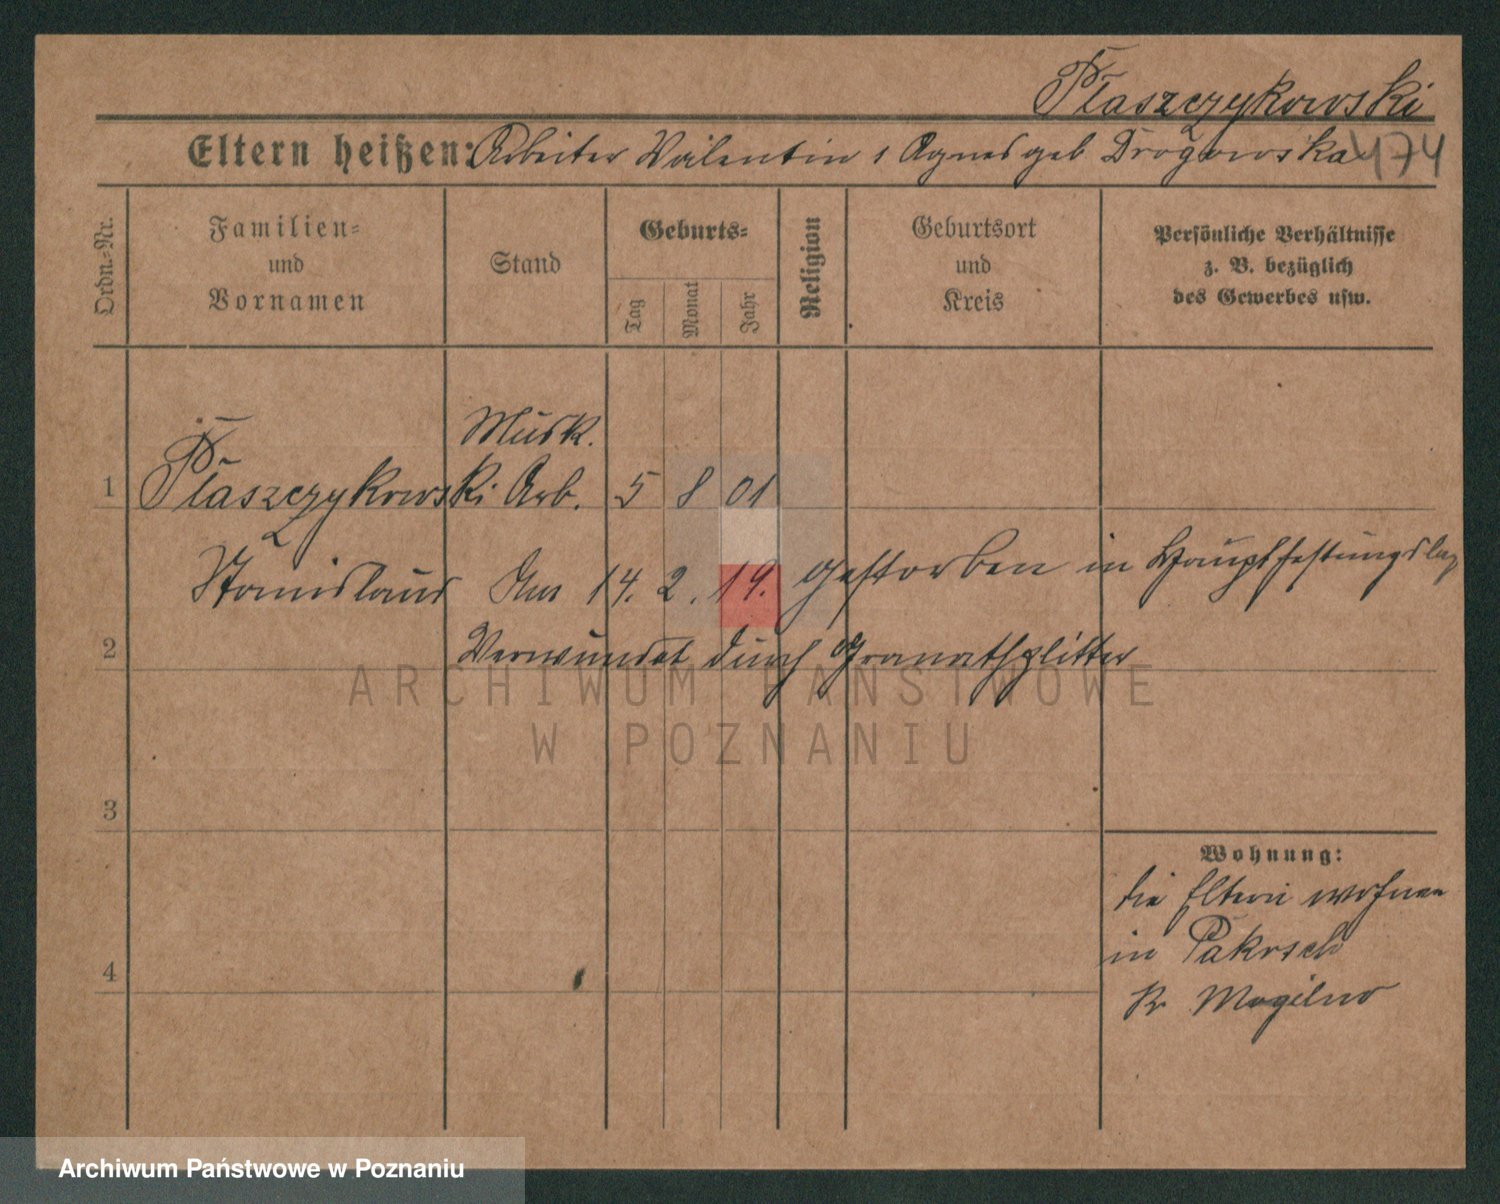 Płaszczykowski
Eltern heißen: Arbeiter Valentin u Agnes geb Drogowska 474
Ordn.-Nr.
Familien- und Vornamen
Stand
Geburts-
Tag
Monat
Jahr
Religion
Geburtsort und Kreis
Persönliche Verhältnisse z. B. bezüglich des Gewerbes usw.
Musk.
1 Płaszczykowski Arb. 5 8 01
Stanislaus Am 14. 2. 19. gestorben in Hauptfestungslaz
2 Verwundet durch Granatsplitter
ARCHIWUM PAŃSTWOWE
W POZNANIU
3
Wohnung:
die Eltern wohnen
in Pakosch
4
Kr Mogilno
Archiwum Państwowe w Poznaniu